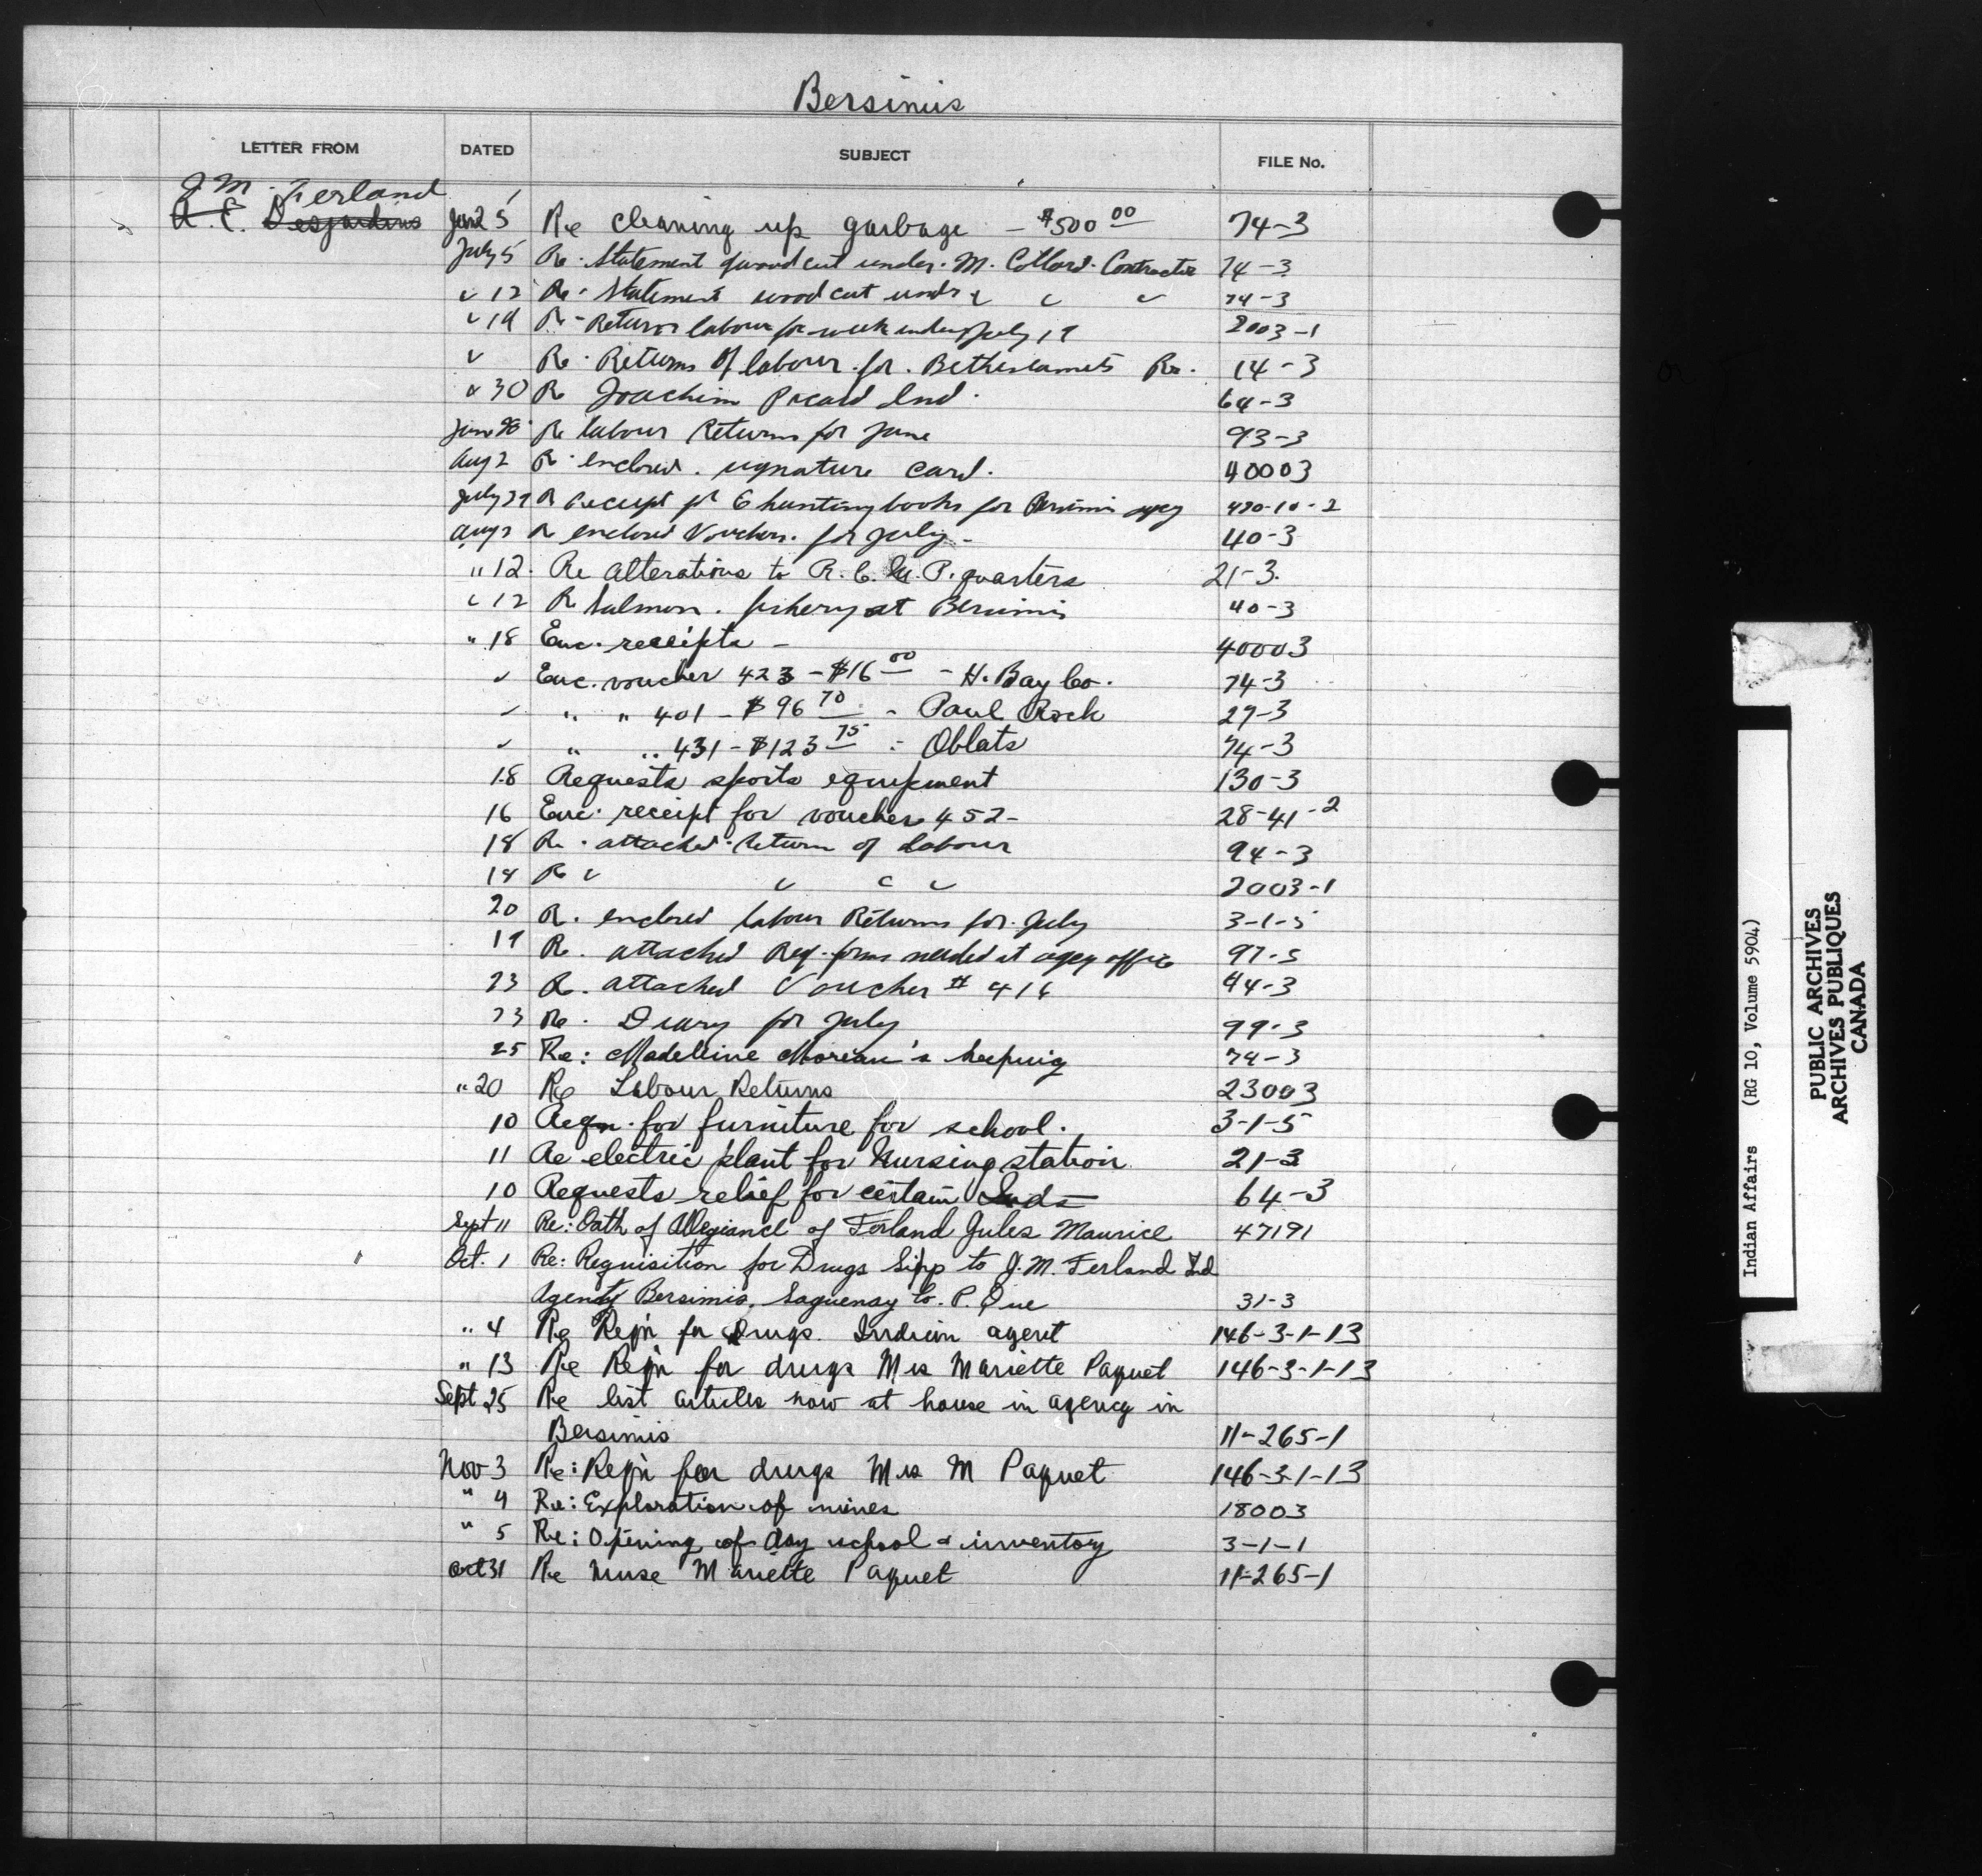 Bersimis
LETTER FROM DATED SUBJECT FILE No.
J. M. Ferland
A. E. Desjardins June 5 Re cleaning up garbage - $500 00 74-3
July 5 Re. Statement of wood cut under. M. Collard. Contractor 74-3
" 12 Re. Statement wood cut under " " " 74-3
" 19 Re - Return labour for week ending July 19 2003-1
" Re. Returns of labour for. Bethesiamits Re. 14-3
" 30 Re Joachim Picard Ind. 64-3
June 28 Re labour Returns for June 93-3
Aug 2 Re enclosed. signature card. 40003
July 29 Re receipt for 6 hunting books for Bersimis agcy 420-10-2
Aug 2 Re enclosed Vouchers. for July - 40-3
" 12. Re alterations to R.C.M.P. quarters 21-3.
" 12 Re Salmon. fishery at Bersimis 40-3
" 18 Enc. receipts - 40003
" Enc. voucher 423 - $16 00 - H. Bay Co. 74-3
" " " 401 - $96 70 - Paul Rock 27-3
" " " 431 - $123 75 - Oblats 74-3
18 Requests sports equipment 130-3
16 Enc. receipt for voucher 452- 28-41-2
18 Re. attached. Return of labour 94-3
14 Re " " " " 2003-1
20 Re. enclosed labour Returns for July 3-1-5
19 Re. attached Req. forms needed at agcy office 97-5
23 Re. attached Voucher # 416 44-3
23 Re. Diary for July 99-3
25 Re: Madelline Moreau's keeping 74-3
" 20 Re Labour Returns 23003
10 Reqn. for furniture for school. 3-1-5
11 Re electric plant for Nursing station 21-3
10 Requests relief for certain Inds 64-3
Sept 11 Re: Oath of Allegiance of Ferland Jules Maurice 47191
Oct. 1 Re: Requisition for Drugs Supp to J. M. Ferland Ind
Agency Bersimis, Saguenay Co. P. Que 31-3
" 4 Re Reqn for drugs. Indian agent 146-3-1-13
" 13 Re Reqn for drugs Mrs Mariette Paquet 146-3-1-13
Sept 25 Re list articles now at house in agency in
Bersimis 11-265-1
Nov 3 Re: Reqn for drugs Mrs M Paquet 146-3-1-13
" 4 Re: Exploration of mines 18003
" 5 Re: Opening of day school & inventory 3-1-1
Oct 31 Re Nurse Mariette Paquet 11-265-1
Indian Affairs (RG 10, Volume 5904)
PUBLIC ARCHIVES
ARCHIVES PUBLIQUES
CANADA